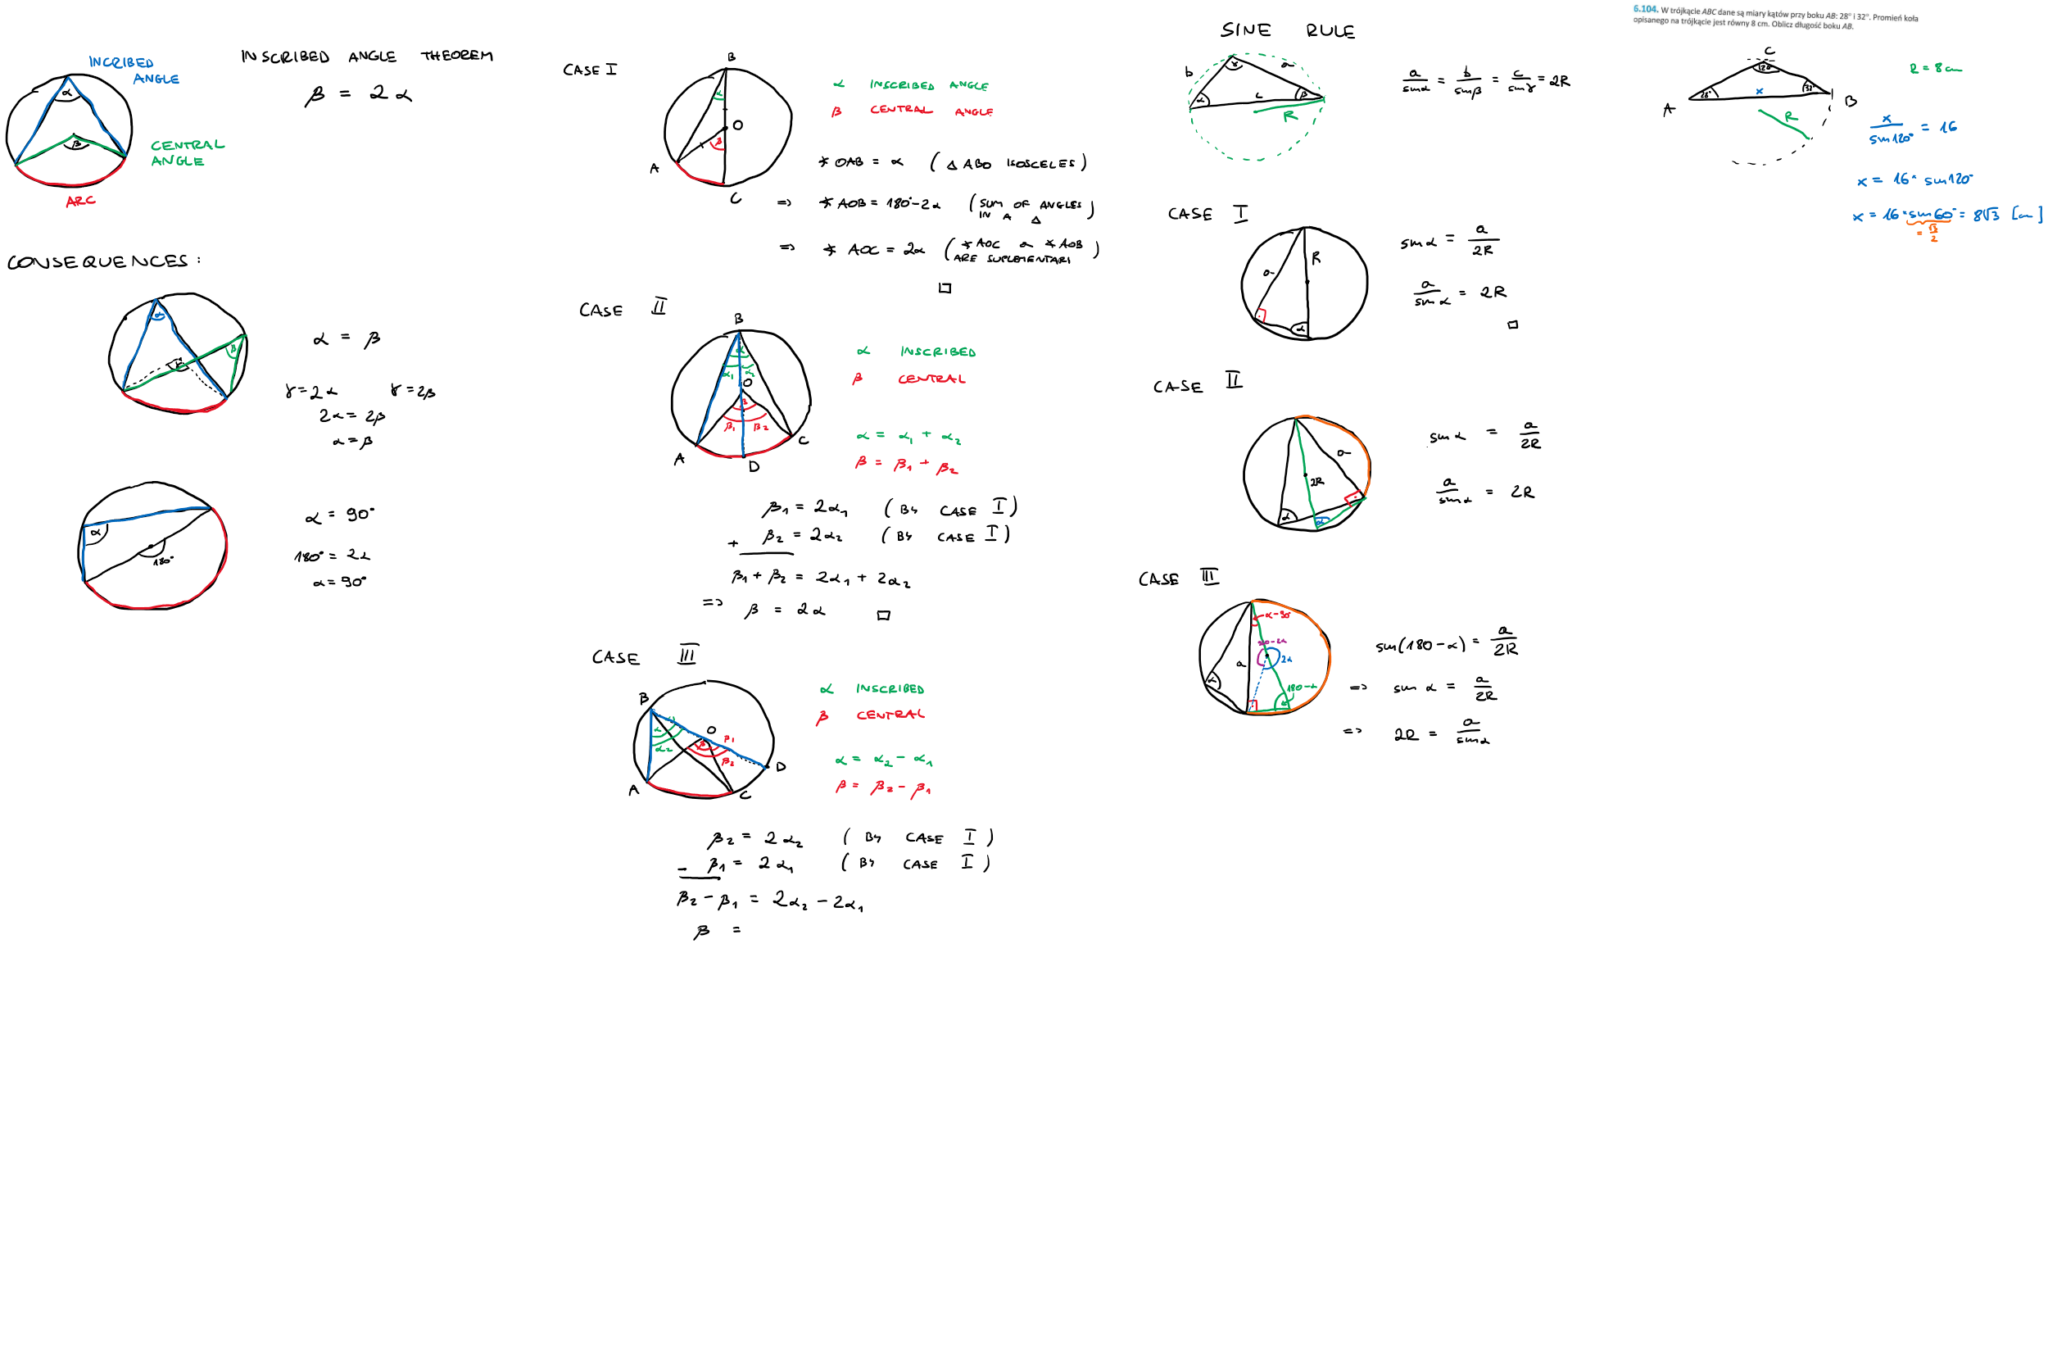 INSCRIBED ANGLE THEOREM
β = 2α
INCRIBED
ANGLE
α
β
CENTRAL
ANGLE
ARC
CONSEQUENCES :
α
β
γ
α = β
γ = 2α γ = 2β
2α = 2β
α = β
α
180°
α = 90°
180° = 2α
α = 90°
CASE I
B
α
O
β
A
C
α INSCRIBED ANGLE
β CENTRAL ANGLE
∢ OAB = α ( △ ABO ISOSCELES )
=> ∢ AOB = 180° - 2α ( SUM OF ANGLES IN A △ )
=> ∢ AOC = 2α ( ∢ AOC a ∢ AOB ARE SUPLEMENTARI )
□
CASE II
B
α
α₁ α₂
O
β
β₁ β₂
A
C
D
α INSCRIBED
β CENTRAL
α = α₁ + α₂
β = β₁ + β₂
β₁ = 2α₁ ( By CASE I )
+ β₂ = 2α₂ ( By CASE I )
β₁ + β₂ = 2α₁ + 2α₂
=> β = 2α □
CASE III
B
α
α₁
α₂
O
β
β₁
β₂
D
A
C
α INSCRIBED
β CENTRAL
α = α₂ - α₁
β = β₂ - β₁
β₂ = 2α₂ ( By CASE I )
- β₁ = 2α₁ ( By CASE I )
β₂ - β₁ = 2α₂ - 2α₁
β =
SINE RULE
b
γ
a
α
c
β
R
a/sinα = b/sinβ = c/sinγ = 2R
CASE I
a
R
α
sinα = a/2R
a/sinα = 2R
□
CASE II
a
2R
α
α
sinα = a/2R
a/sinα = 2R
CASE III
α-90°
2α
a
α
180-α
sin(180-α) = a/2R
=> sinα = a/2R
=> 2R = a/sinα
6.104. W trójkącie ABC dane są miary kątów przy boku AB: 28° i 32°. Promień koła
opisanego na trójkącie jest równy 8 cm. Oblicz długość boku AB.
C
120°
28°
32°
x
A
B
R
R = 8 cm
x/sin120° = 16
x = 16 · sin120°
x = 16 · sin60° = 8√3 [cm]
= √3/2